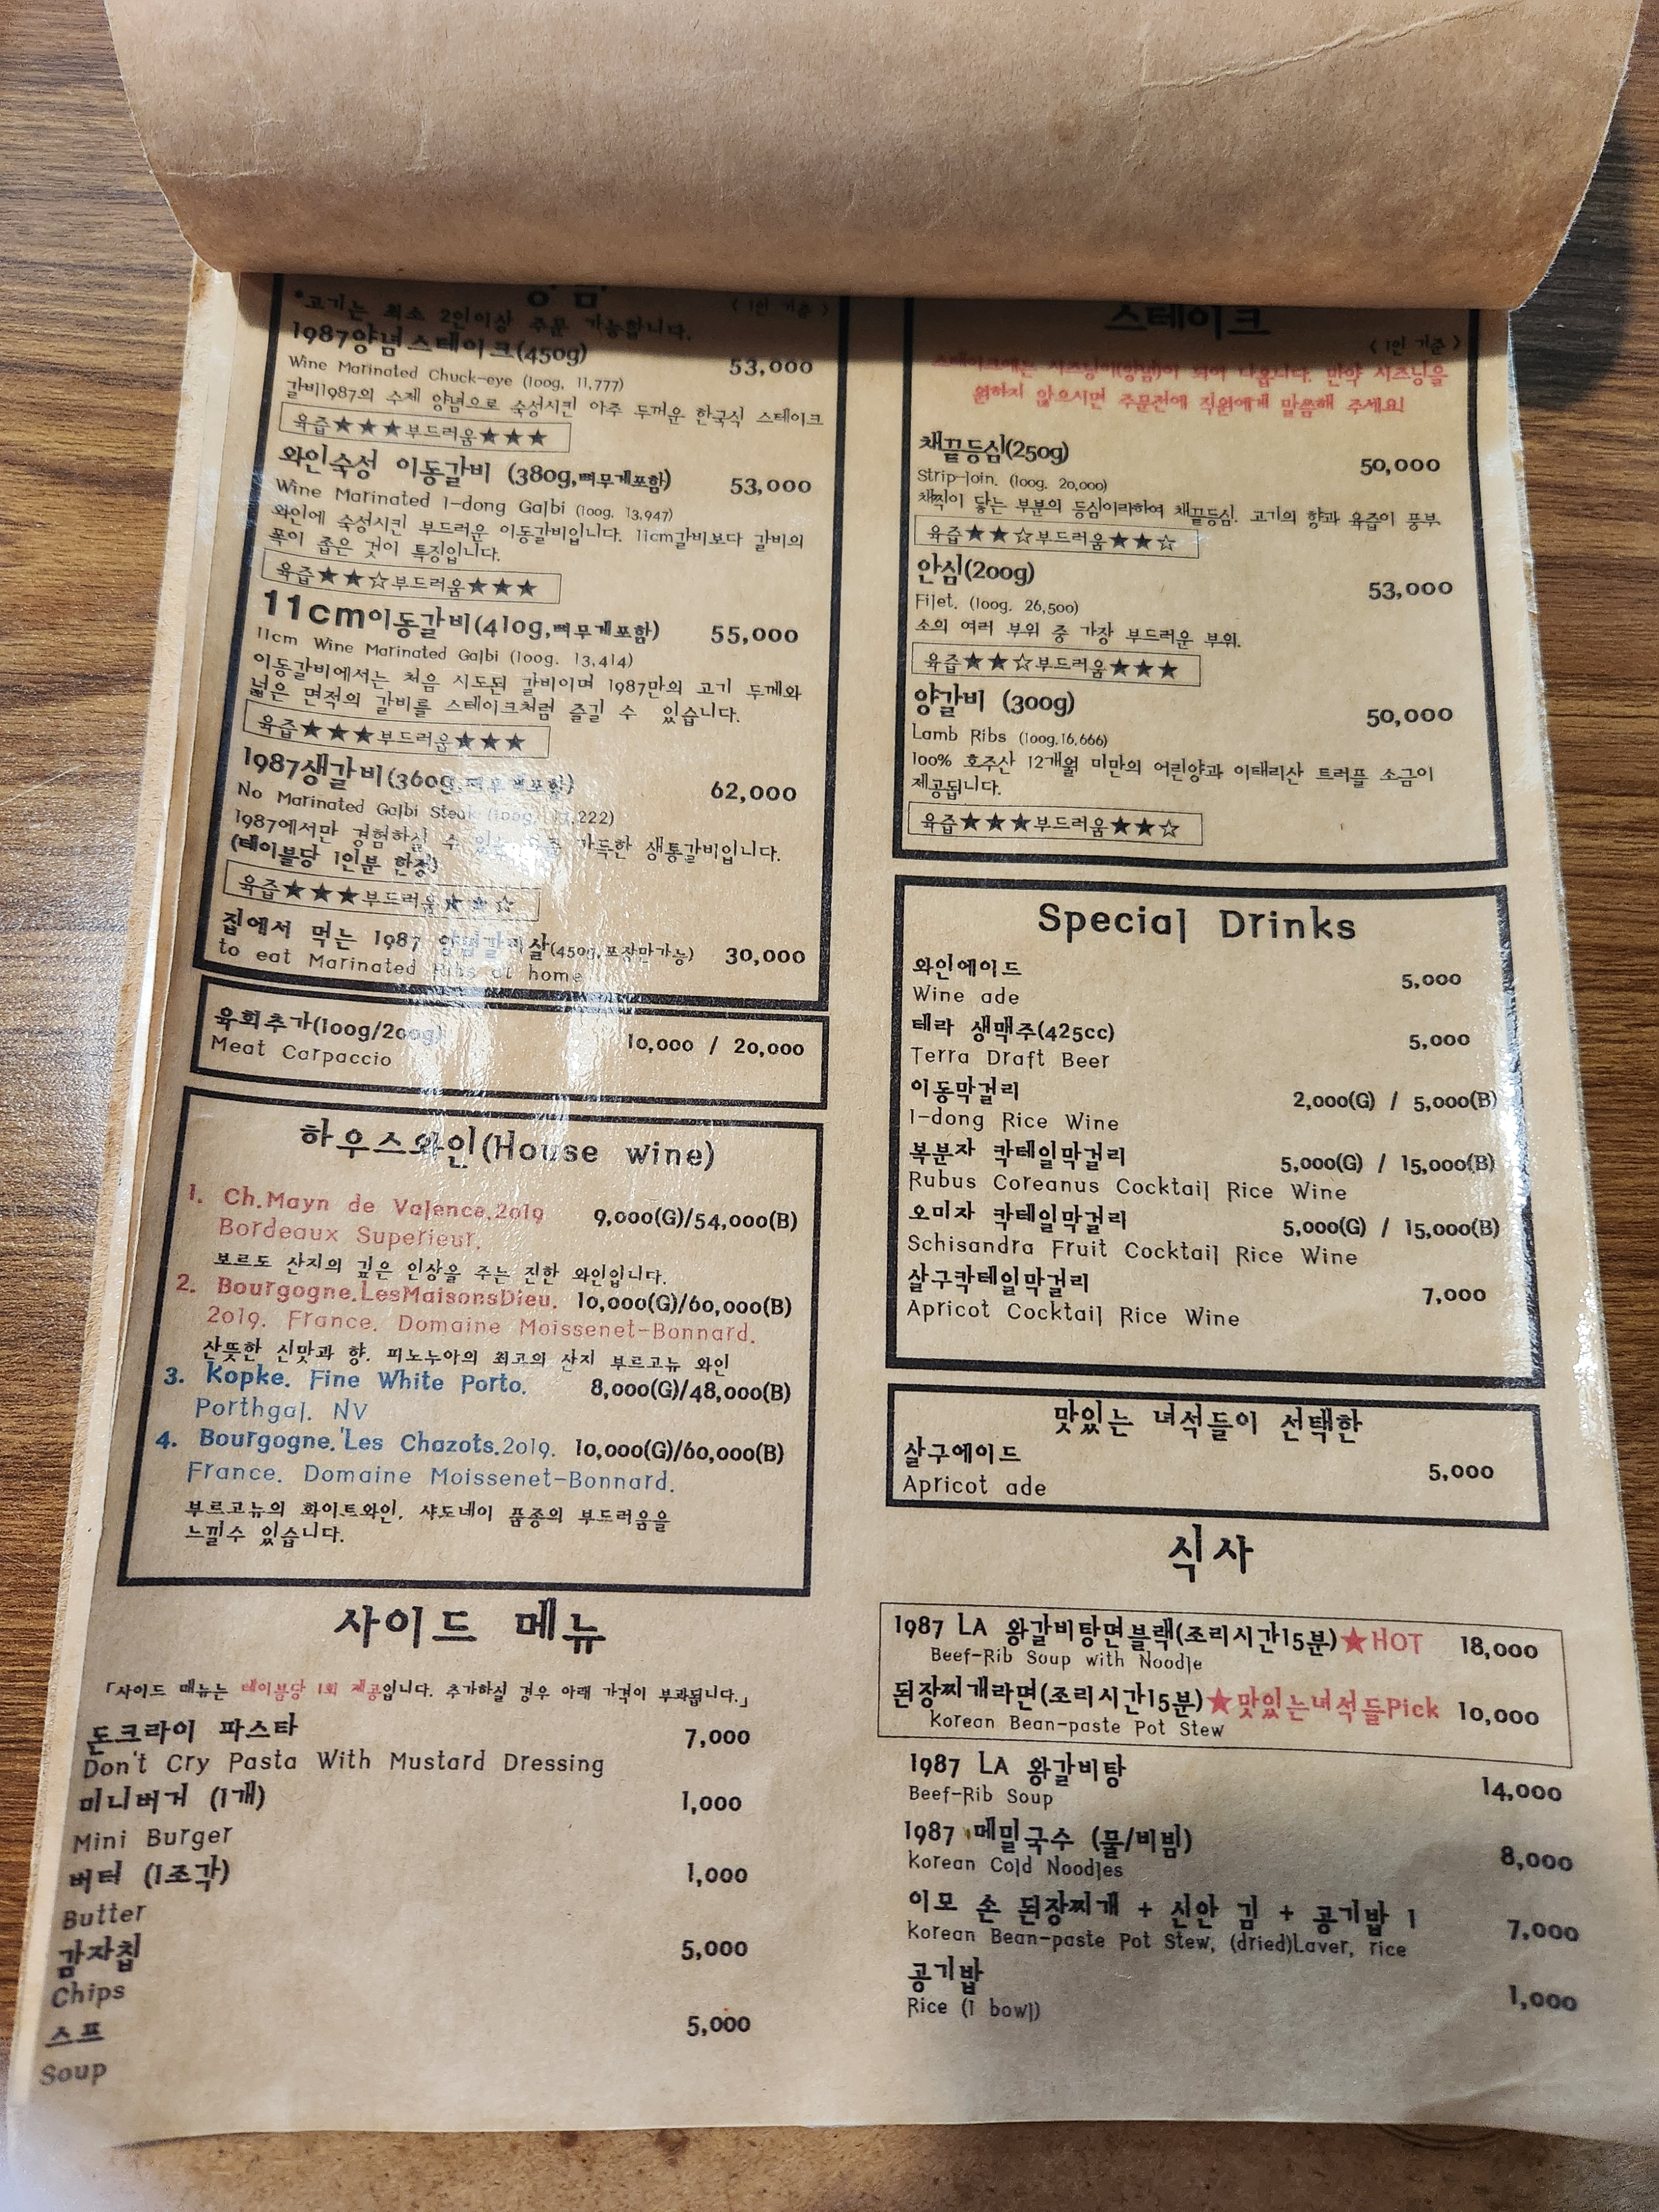 *고기는 최소 2인이상 주문 가능합니다.
< 1인 기준 >
1987양념스테이크(450g) 53,000
Wine Marinated Chuck-eye (100g. 11,777)
갈비1987의 수제 양념으로 숙성시킨 아주 두꺼운 한국식 스테이크
육즙★★★부드러움★★★
와인숙성 이동갈비 (380g,뼈무게포함) 53,000
Wine Marinated I-dong Galbi (100g. 13,947)
와인에 숙성시킨 부드러운 이동갈비입니다. 11cm갈비보다 갈비의
폭이 좁은 것이 특징입니다.
육즙★★☆부드러움★★★
11cm이동갈비(410g,뼈무게포함) 55,000
11cm Wine Marinated Galbi (100g. 13,414)
이동갈비에서는 처음 시도된 갈비이며 1987만의 고기 두께와
넓은 면적의 갈비를 스테이크처럼 즐길 수 있습니다.
육즙★★★부드러움★★★
1987생갈비(360g,뼈무게포함) 62,000
No Marinated Galbi Steak
1987에서만 경험하실 수 가득한 생통갈비입니다.
(테이블당 1인분 한정)
육즙★★★부드러움★★☆
집에서 먹는 1987 양념갈비살(450g,포장만가능) 30,000
to eat Marinated Ribs at home
육회추가(100g/200g) 10,000 / 20,000
Meat Carpaccio
하우스와인(House wine)
1. Ch.Mayn de Valence.2019 9,000(G)/54,000(B)
Bordeaux Superieur.
보르도 산지의 깊은 인상을 주는 진한 와인입니다.
2. Bourgogne.LesMaisonsDieu. 10,000(G)/60,000(B)
2019. France. Domaine Moissenet-Bonnard.
산뜻한 신맛과 향. 피노누아의 최고의 산지 부르고뉴 와인
3. Kopke. Fine White Porto. 8,000(G)/48,000(B)
Porthgal. NV
4. Bourgogne.'Les Chazots.2019. 10,000(G)/60,000(B)
France. Domaine Moissenet-Bonnard.
부르고뉴의 화이트와인, 샤도네이 품종의 부드러움을
느낄수 있습니다.
사이드 메뉴
「사이드 매뉴는 테이블당 1회 제공입니다. 추가하실 경우 아래 가격이 부과됩니다.」
돈크라이 파스타 7,000
Don't Cry Pasta With Mustard Dressing
미니버거 (1개) 1,000
Mini Burger
버터 (1조각) 1,000
Butter
감자칩 5,000
Chips
스프 5,000
Soup
스테이크
< 1인 기준 >
스테이크에는 시즈닝이(양념)이 되어 나옵니다. 만약 시즈닝을
원하지 않으시면 주문전에 직원에게 말씀해 주세요!
채끝등심(250g) 50,000
Strip-loin. (100g. 20,000)
채찍이 닿는 부분의 등심이라하여 채끝등심. 고기의 향과 육즙이 풍부
육즙★★☆부드러움★★☆
안심(200g) 53,000
Filet. (100g. 26,500)
소의 여러 부위 중 가장 부드러운 부위.
육즙★★☆부드러움★★★
양갈비 (300g) 50,000
Lamb Ribs (100g.16,666)
100% 호주산 12개월 미만의 어린양과 이태리산 트러플 소금이
제공됩니다.
육즙★★★부드러움★★☆
Special Drinks
와인에이드 5,000
Wine ade
테라 생맥주(425cc) 5,000
Terra Draft Beer
이동막걸리 2,000(G) / 5,000(B)
I-dong Rice Wine
복분자 칵테일막걸리 5,000(G) / 15,000(B)
Rubus Coreanus Cocktail Rice Wine
오미자 칵테일막걸리 5,000(G) / 15,000(B)
Schisandra Fruit Cocktail Rice Wine
살구칵테일막걸리 7,000
Apricot Cocktail Rice Wine
맛있는 녀석들이 선택한
살구에이드 5,000
Apricot ade
식사
1987 LA 왕갈비탕면블랙(조리시간15분)★HOT 18,000
Beef-Rib Soup with Noodle
된장찌개라면(조리시간15분)★맛있는녀석들Pick 10,000
Korean Bean-paste Pot Stew
1987 LA 왕갈비탕 14,000
Beef-Rib Soup
1987 메밀국수 (물/비빔) 8,000
Korean Cold Noodles
이모 손 된장찌개 + 신안 김 + 공기밥 1 7,000
Korean Bean-paste Pot Stew, (dried)Laver, rice
공기밥 1,000
Rice (1 bowl)